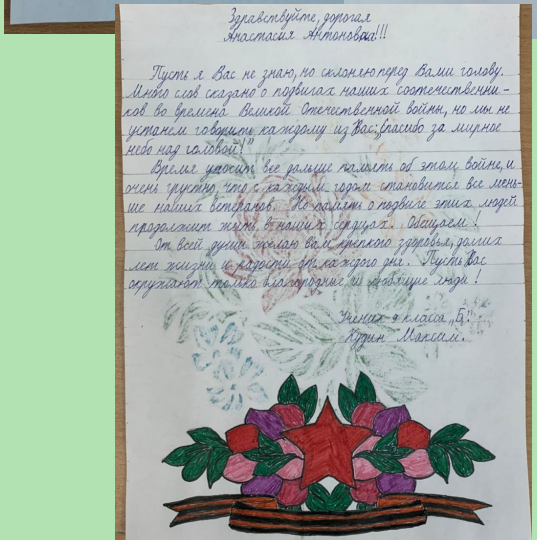 Здравствуйте, дорогая
Анастасия Антоновна!!!
Пусть я Вас не знаю, но склоняю перед Вами голову.
Много слов сказано о подвигах наших соотечественни-
ков во времена Великой Отечественной войны, но мы не
устанем говорить каждому из Вас: „Спасибо за мирное
небо над головой!"
Время уносит все дальше память об этом войне, и
очень грустно, что с каждым годом становится все мень-
ше наших ветеранов. Но память о подвиге этих людей
продолжит жить в наших сердцах. Обещаем!
От всей души желаю вам крепкого здоровья, долгих
лет жизни и радости от каждого дня. Пусть Вас
окружают только благородные и любящие люди!
Ученик 9 класса „Б"
Худин Максим.